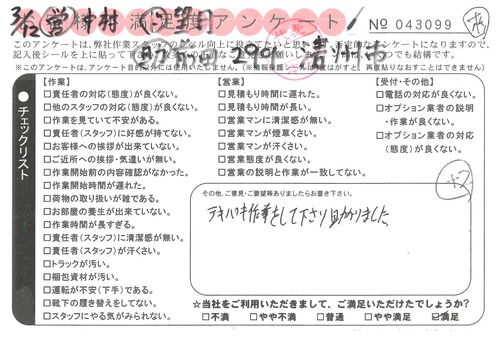 営 中村
お客様満足度アンケート!
No 043099
このアンケートは、弊社作業スタッフのレベル向上に役立てたいと思います。否定的なアンケートになりますので、
※このアンケートは、アンケート目的以外には使用いたしません。
チェックリスト
【作業】
□責任者の対応(態度)が良くない。
□他のスタッフの対応(態度)が良くない。
□作業を見ていて不安がある。
□責任者(スタッフ)に好感が持てない。
□お客様への挨拶が出来ていない。
□ご近所への挨拶・気遣いが無い。
□作業開始前の内容確認がなかった。
□作業開始時間が遅れた。
□荷物の取り扱いが雑である。
□お部屋の養生が出来ていない。
□作業時間が長すぎる。
□責任者(スタッフ)に清潔感が無い。
□責任者(スタッフ)が汗くさい。
□トラックが汚い。
□梱包資材が汚い。
□運転が不安(下手)である。
□靴下の履き替えをしてない。
□スタッフにやる気がみられない。
【営業】
□見積もり時間に遅れた。
□見積もり時間が長い。
□営業マンに清潔感が無い。
□営業マンが煙草くさい。
□営業マンが汗くさい。
□営業態度が良くない。
□営業の説明と作業が一致してない。
【受付・その他】
□電話の対応が良くない。
□オプション業者の説明
・作業が良くない。
□オプション業者の対応
(態度)が良くない。
+2
その他、ご意見・ご要望等ありましたらお書き下さい。
テキパキ作業をして下さり助かりました。
☆当社をご利用いただきまして、ご満足いただけたでしょうか?
□不満 □やや不満 □普通 □やや満足 ☑満足